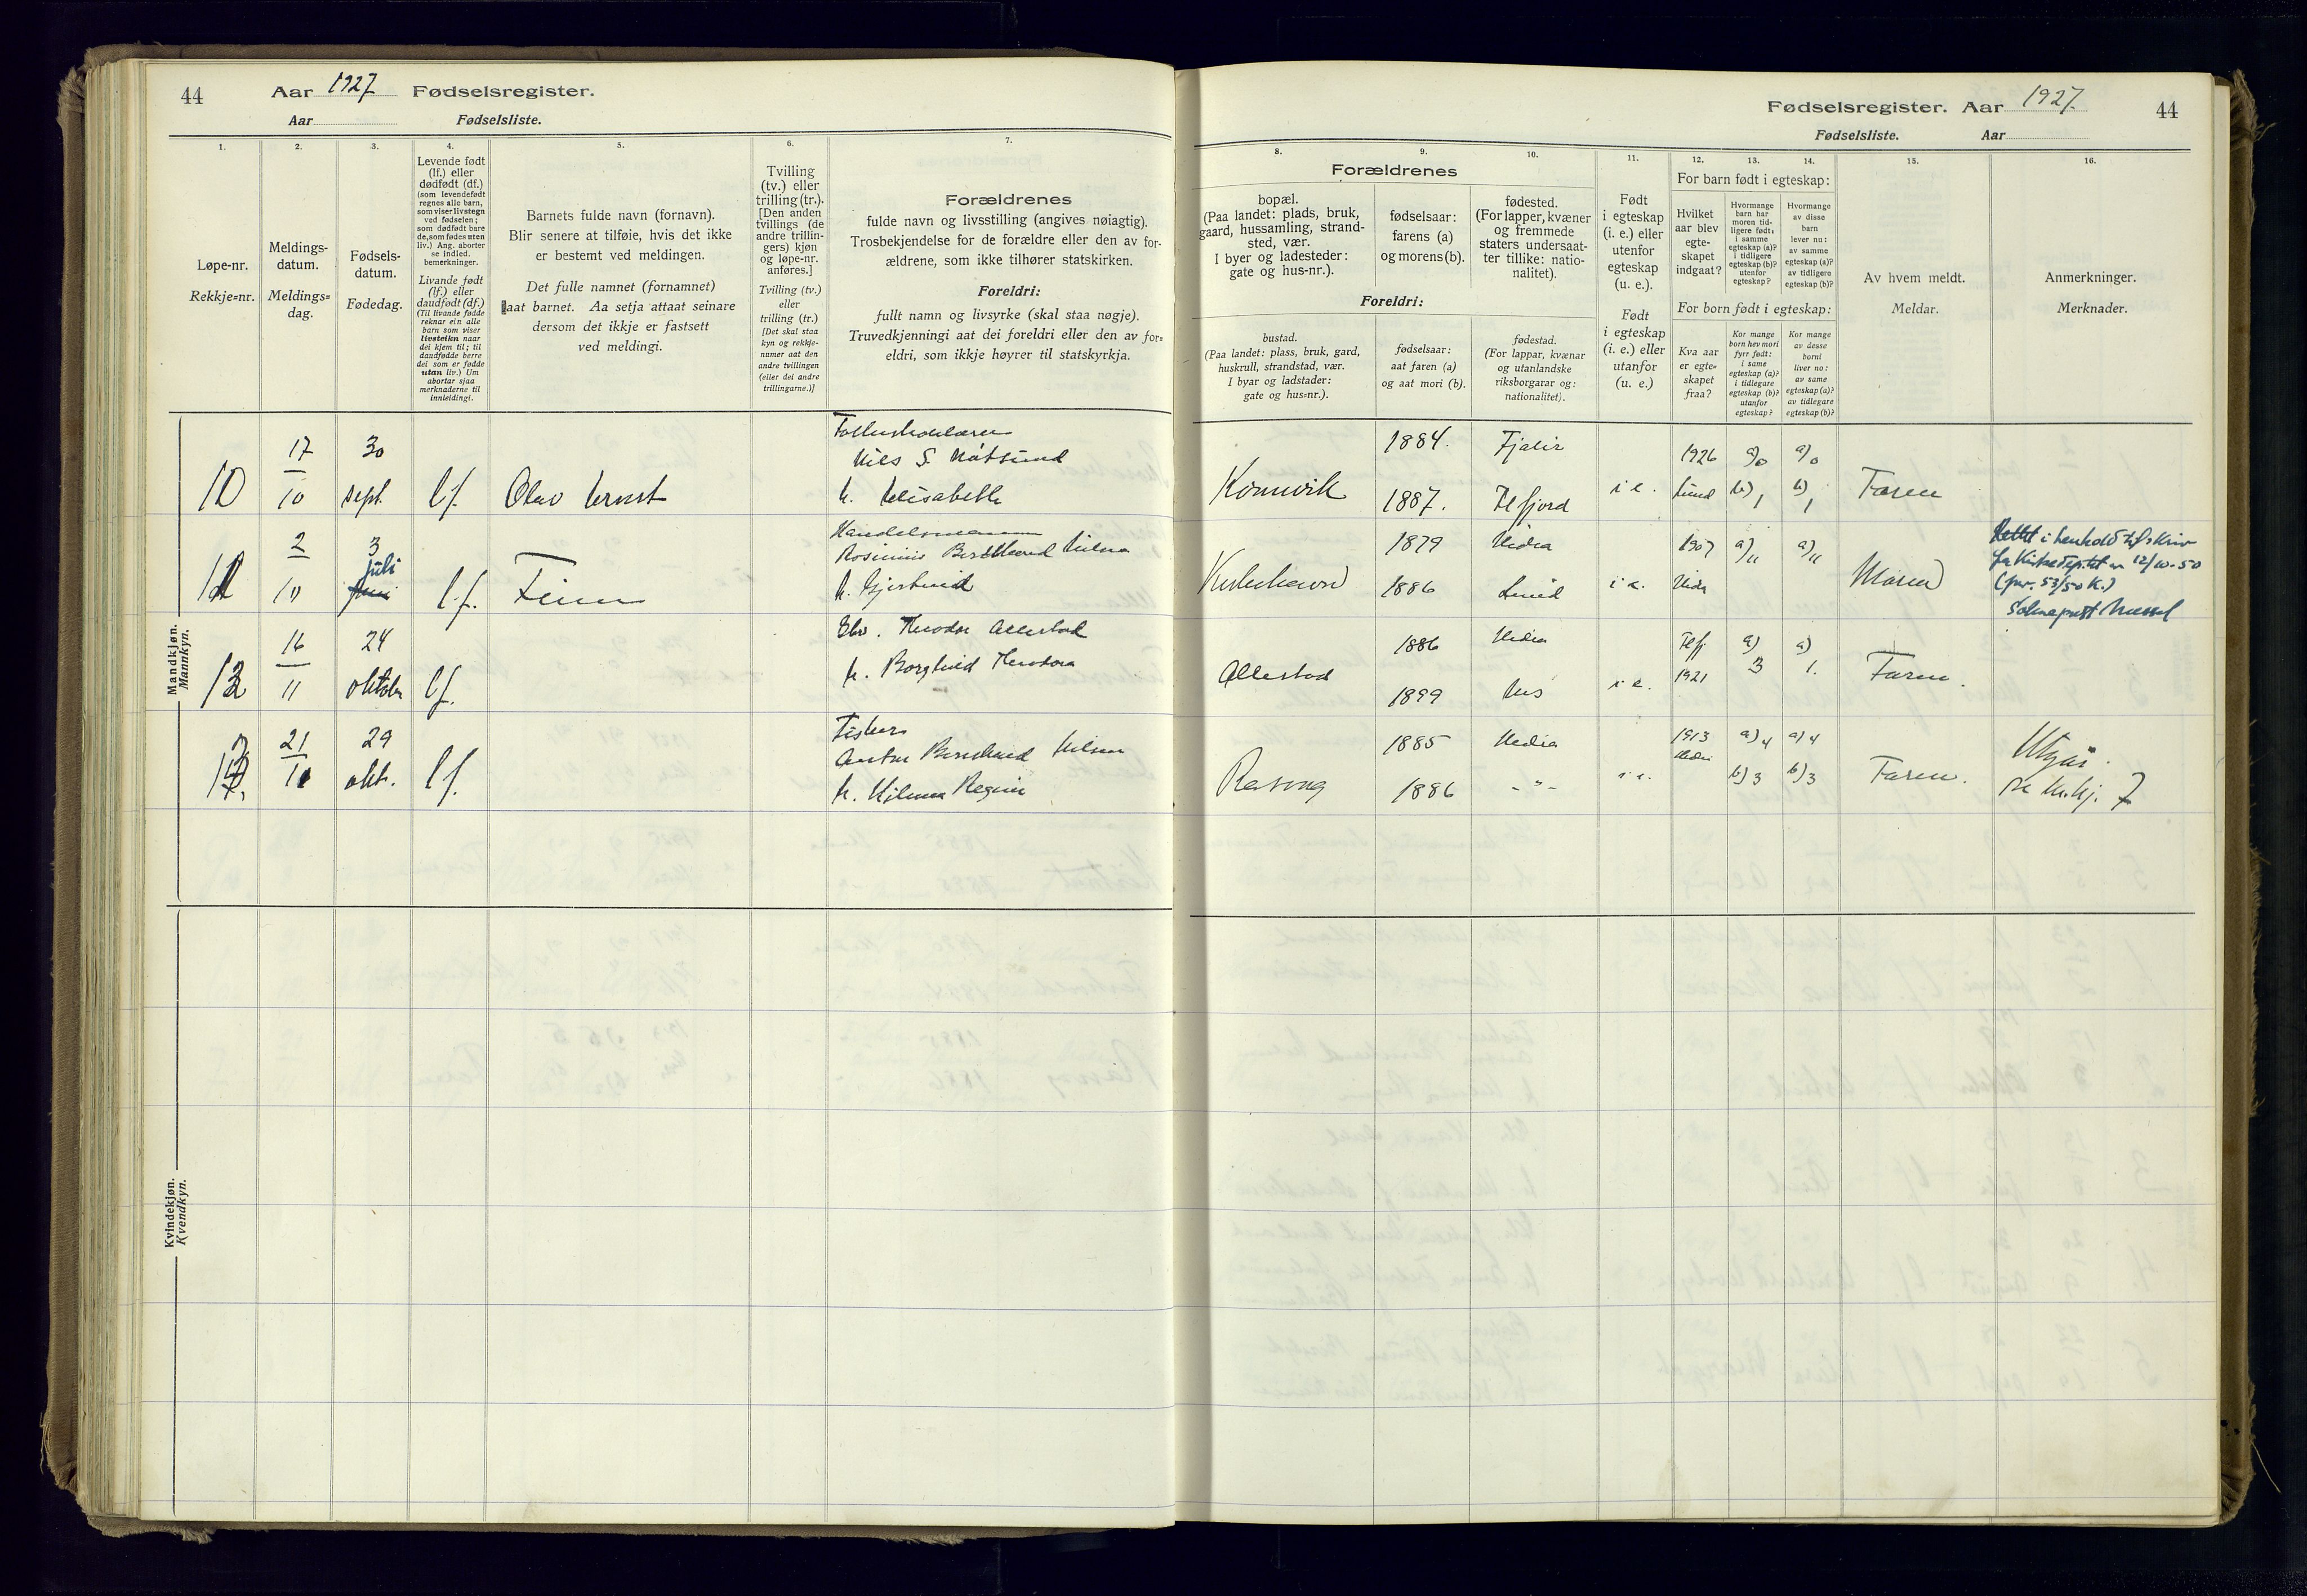 44
Aar 1927 Fødselsregister.
Aar Fødselsliste.
1.
2.
3.
4.
5.
6.
7.
Løpe-nr.
Rekkje=nr.
Meldings-
datum.
Meldings=
dag.
Fødsels-
datum.
Fødedag.
Levende født
(lf.) eller
dødfødt (df.)
(som levendefødt
regnes alle barn,
som viser livstegn
ved fødselen;
som dødfødt bare
de, som fødes uten
liv.) Ang. aborter
se indled.
bemerkninger.
Livande født
(lf.) eller
daudfødt (df.)
(Til livande fødde
reknar ein alle
barn som viser
livsteikn naar
dei kjem til; til
daudfødde berre
dei som er fødde
utan liv.) Um
abortar sjaa
merknaderne til
innleidingi.
Barnets fulde navn (fornavn).
Blir senere at tilføie, hvis det ikke
er bestemt ved meldingen.
Det fulle namnet (fornamnet)
aat barnet. Aa setja attaat seinare
dersom det ikkje er fastsett
ved meldingi.
Tvilling
(tv.) eller
trilling (tr.).
[Den anden
tvillings (de
andre trillin-
gers) kjøn
og løpe-nr.
anføres.]
Tvilling (tv.)
eller
trilling (tr.)
[Det skal staa
kyn og rekkje-
numer aat den
andre tvillingen
(eller dei andre
trillingarne.)]
Forældrenes
fulde navn og livsstilling (angives nøiagtig).
Trosbekjendelse for de forældre eller den av for-
ældrene, som ikke tilhører statskirken.
Foreldri:
fullt namn og livsyrke (skal staa nøgje).
Truvedkjenningi aat dei foreldri eller den av for=
eldri, som ikkje høyrer til statskyrkja.
Mandkjøn.
Mannkyn.
10
17
10
30
sept.
lf.
Olav Ernst
Nils S.
h. Elisabeth
11
2
11
3
juli
lf.
Finn
Handelsmann
h. Gjertrud
12
16
11
24
oktober
lf.
Theodor Allestad
h. Borghild Theodora
13
21
11
29
okt.
lf.
Fisker
Anton Bernhard Nilsen
h. Hilma Regine
Kvindekjøn.
Kvendkyn.
Fødselsregister. Aar 1927.
44
Fødselsliste. Aar
8.
9.
10.
11.
12.
13.
14.
15.
16.
Forældrenes
bopæl.
(Paa landet: plads, bruk,
gaard, hussamling, strand-
sted, vær.
I byer og ladesteder:
gate og hus-nr.).
fødselsaar:
farens (a)
og morens (b).
fødested.
(For lapper, kvæner
og fremmede
staters undersaat-
ter tillike: natio-
nalitet).
Foreldri:
bustad.
(Paa landet: plass, bruk, gard,
huskrull, strandstad, vær.
I byar og ladstader:
gate og hus=nr.).
fødselsaar:
aat faren (a)
og aat mori (b).
fødestad.
(For lappar, kvænar
og utanlandske
riksborgarar og:
nationalitet).
Født
i egteskap
(i. e.) eller
utenfor
egteskap
(u. e.).
Født
i egteskap
(i. e.) eller
utanfor
(u. e.)
For barn født i egteskap:
Hvilket
aar blev
egte-
skapet
indgaat?
Hvormange
barn har
moren tid-
ligere født:
i samme
egteskap (a)?
i tidligere
egteskap (b)?
utenfor
egteskap?
Hvormange
av disse
barn
lever nu:
av samme
egteskap (a)?
av tidligere
egteskap (b)?
For born født i egteskap:
Kva aar
er egte=
skapet
fraa?
Kor mange
born hev mori
fyrr født:
i same
egteskap (a)?
i tidlegare
egteskap (b)?
utanfor
egteskap?
Kor mange
av desse
borni
liver no:
av same
egteskap (a)?
av tidlegare
egteskap (b)?
Av hvem meldt.
Meldar.
Anmerkninger.
Merknader.
Kornvik
1884.
1887.
Fjaler
i e.
1926
a) 0
b) 1
a) 0
b) 1
Faren
1879
1886
Hidra
Lund
i e.
1907
a) 11
a) 11
Moren
Rettet i henhold til skriv
fra Kirkedep.tet av 12/10-50
(jnr. 53/50 K.)
Sokneprest
Allestad
1886
1899
Hidra
i e.
1921
a)
3
a)
1.
Faren.
Rasvåg
1885
1886
Hidra
- " -
i e.
1913
a) 4
b) 3
a) 4
b) 3
Faren.
Utgår.
se kv.kj. 7